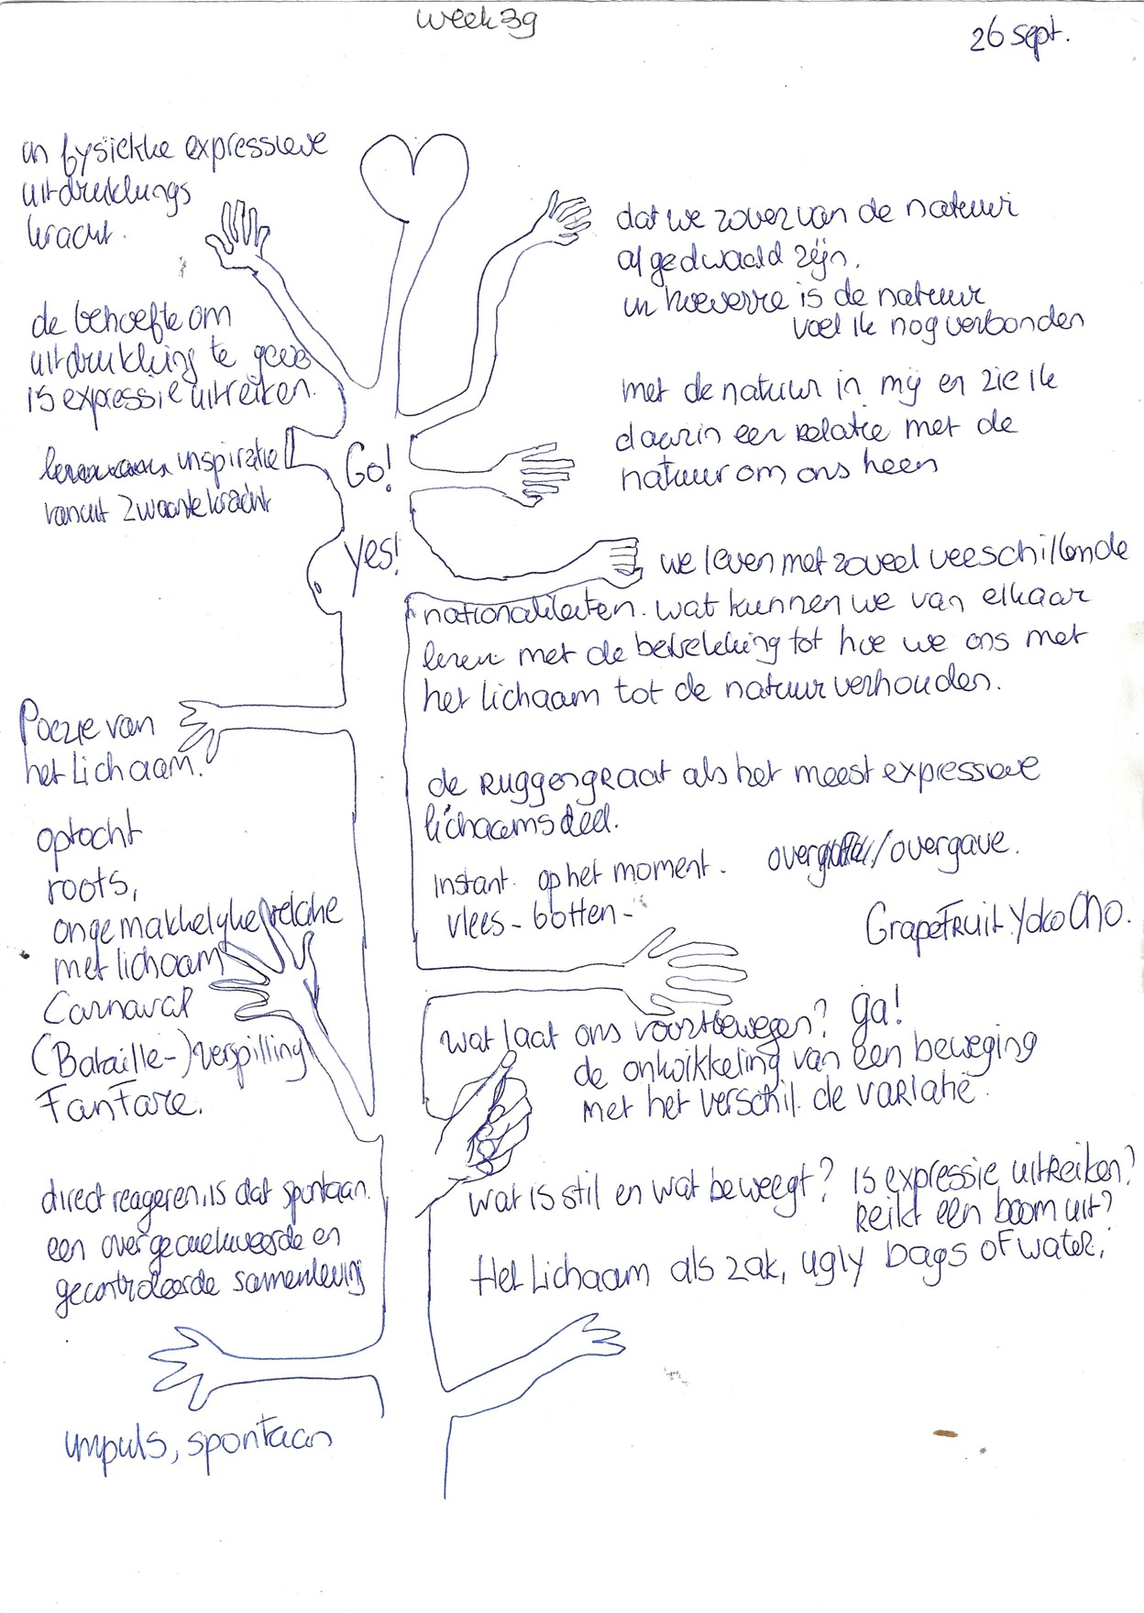 week 39
26 sept.
in fysiekke expressieve
uitdrukkings
kracht.
de behoefte om
uitdrukking te geve
is expressie uitreiken.
inspiratie
vanuit zwaartekracht
Go!
Yes!
dat we zover van de natuur
afgedwaald zijn.
in hoeverre is de natuur
voel ik nog verbonden
met de natuur in mij en zie ik
daarin een relatie met de
natuur om ons heen
we leven met zoveel verschillende
nationaliteiten. wat kunnen we van elkaar
leren met de betrekking tot hoe we ons met
het lichaam tot de natuur verhouden.
Poëzie van
het lichaam.
optocht
roots,
ongemakkelijke relatie
met lichaam
Carnaval
(Bataille-) verspilling
FanFare.
de Ruggengraat als het meest expressieve
lichaamsdeel.
Instant. op het moment. /overgave.
vlees - botten -
GrapeFruit. Yoko Ono.
wat laat ons voortbewegen? ga!
de ontwikkeling van een beweging
met het verschil. de variatie.
direct reageren, is dat spontaan.
een overgecultiveerde en
gecontroleerde samenleving
wat is stil en wat beweegt? Is expressie uitreiken?
Reikt een boom uit?
Het lichaam als zak, ugly bags of water,
impuls, spontaan